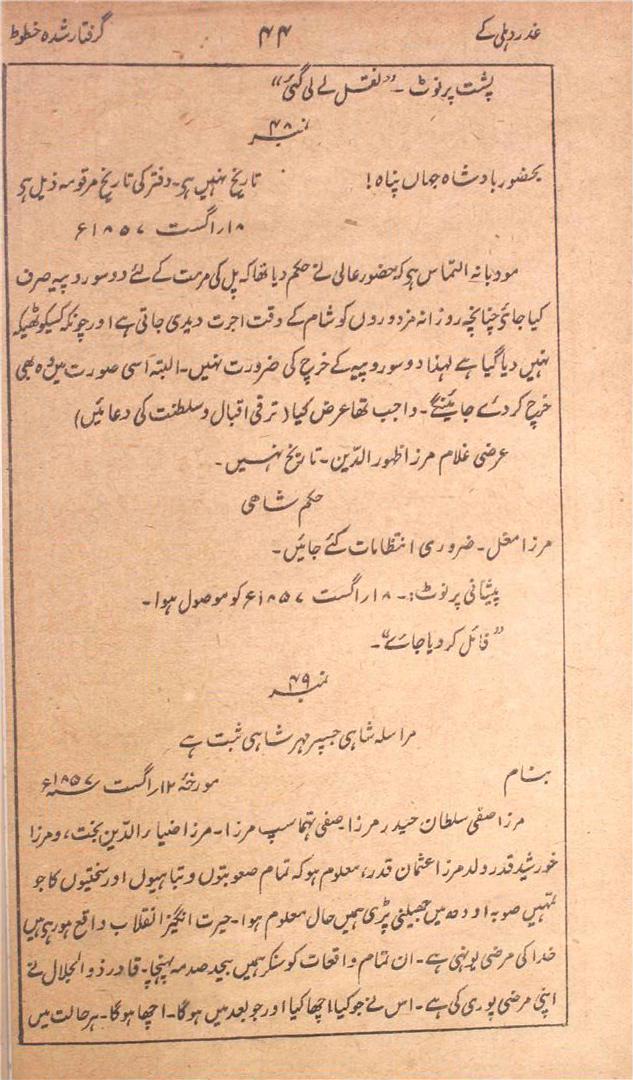 غدر دہلی کے ۴۴ گرفتار شدہ خطوط
پشت پر نوٹ ۔ "نقل لے لی گئی"
نمبر ۴۸
بحضور بادشاہ جہاں پناہ! تاریخ نہیں ہی۔ دفتر کی تاریخ مرقومہ ذیل ہی
۱۸/ اگست ۱۸۵۷ء
مودبانہ التماس ہی کہ حضور عالی نے حکم دیا تھا کہ پل کی مرمت کے لئے دو سو روپیہ صرف
کیا جائے چنانچہ روزانہ مزدوروں کو شام کے وقت اجرت دیدی جاتی ہے اور چونکہ کسیکو ٹھیکہ
نہیں دیا گیا ہے لہذا دو سو روپیہ کے خرچ کی ضرورت نہیں۔ البتہ اسی صورت میں وہ بھی
خرچ کر دے جائینگے۔ واجب تھا عرض کیا (ترقی اقبال و سلطنت کی دعائیں)
عرضی غلام مرزا ظہور الدین۔ تاریخ نہیں۔
حکم شاہی
مرزا مغل۔ ضروری انتظامات کئے جائیں۔
پیشانی پر نوٹ:۔ ۱۸/ اگست ۱۸۵۷ء کو موصول ہوا۔
"فائل کر دیا جائے"۔
نمبر ۴۹
مراسلہ شاہی جسپر مہر شاہی ثبت ہے
بنام مورخہ ۱۲/ اگست سنہ ۱۸۵۷ء
مرزا صفی سلطان حیدر مرزا صفی تہماسپ مرزا۔ مرزا ضیاء الدین بخت، و مرزا
خورشید قدر ولد مرزا عثمان قدر، معلوم ہو کہ تمام صعوبتوں و تباہیوں اور سختیوں کا جو
تمہیں صوبہ اودھ میں جھیلنی پڑی ہمیں حال معلوم ہوا۔ حیرت انگیز انقلاب واقع ہو رہی ہیں
خدا کی مرضی یونہی ہے۔ ان تمام واقعات کو سنکر ہمیں بیحد صدمہ پہنچا۔ قادر ذوالجلال نے
اپنی مرضی پوری کی ہے۔ اس نے جو کیا اچھا کیا اور جو بعد میں ہو گا۔ اچھا ہو گا۔ ہر حالت میں